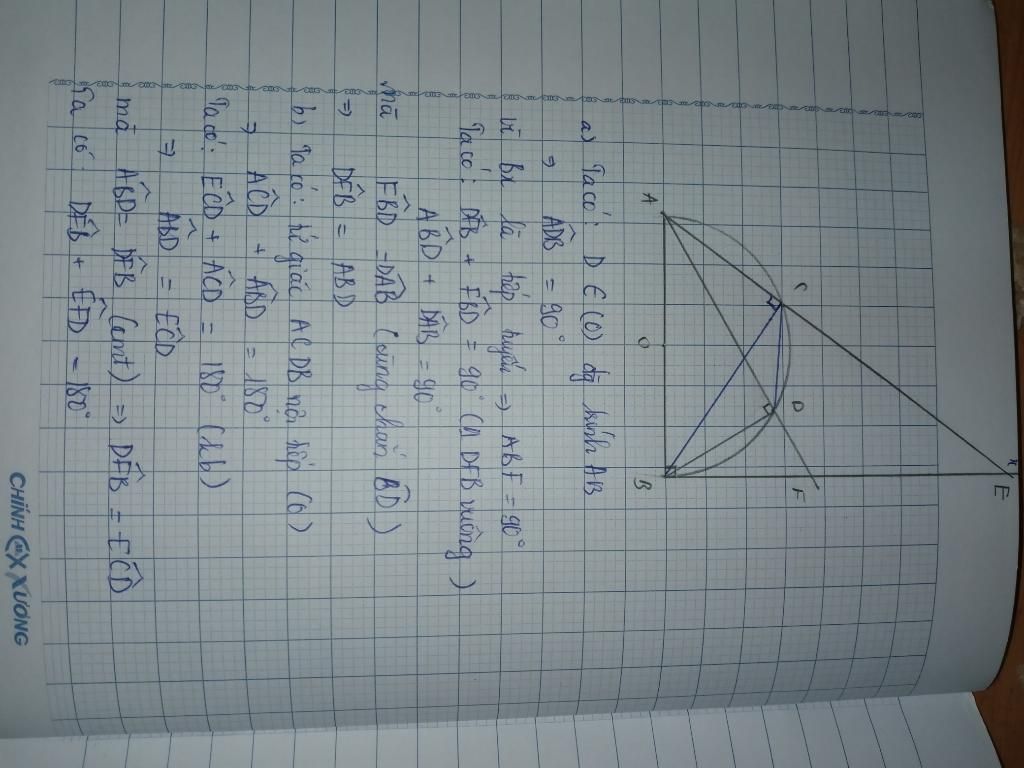 x
E
C
D
F
A
O
B
a) Ta có: D ∈ (O) đg kính AB
⇒ ADB̂ = 90°
Vì Bx là tiếp tuyến ⇒ ABF = 90°
Ta có: DFB̂ + FBD̂ = 90° (Δ DFB vuông)
ABD̂ + DAB̂ = 90°
Mà FBD̂ = DAB̂ (cùng chắn BD̂)
⇒ DFB̂ = ABD
b) Ta có: tứ giác ACDB nội tiếp (O)
⇒ ACD̂ + ABD̂ = 180°
Ta có: ECD̂ + ACD̂ = 180° (kb)
⇒ ABD̂ = ECD̂
mà ABD̂ = DFB̂ (cmt) ⇒ DFB̂ = ECD̂
Ta có DFB̂ + EFD̂ = 180°
CHÍNH XƯƠNG